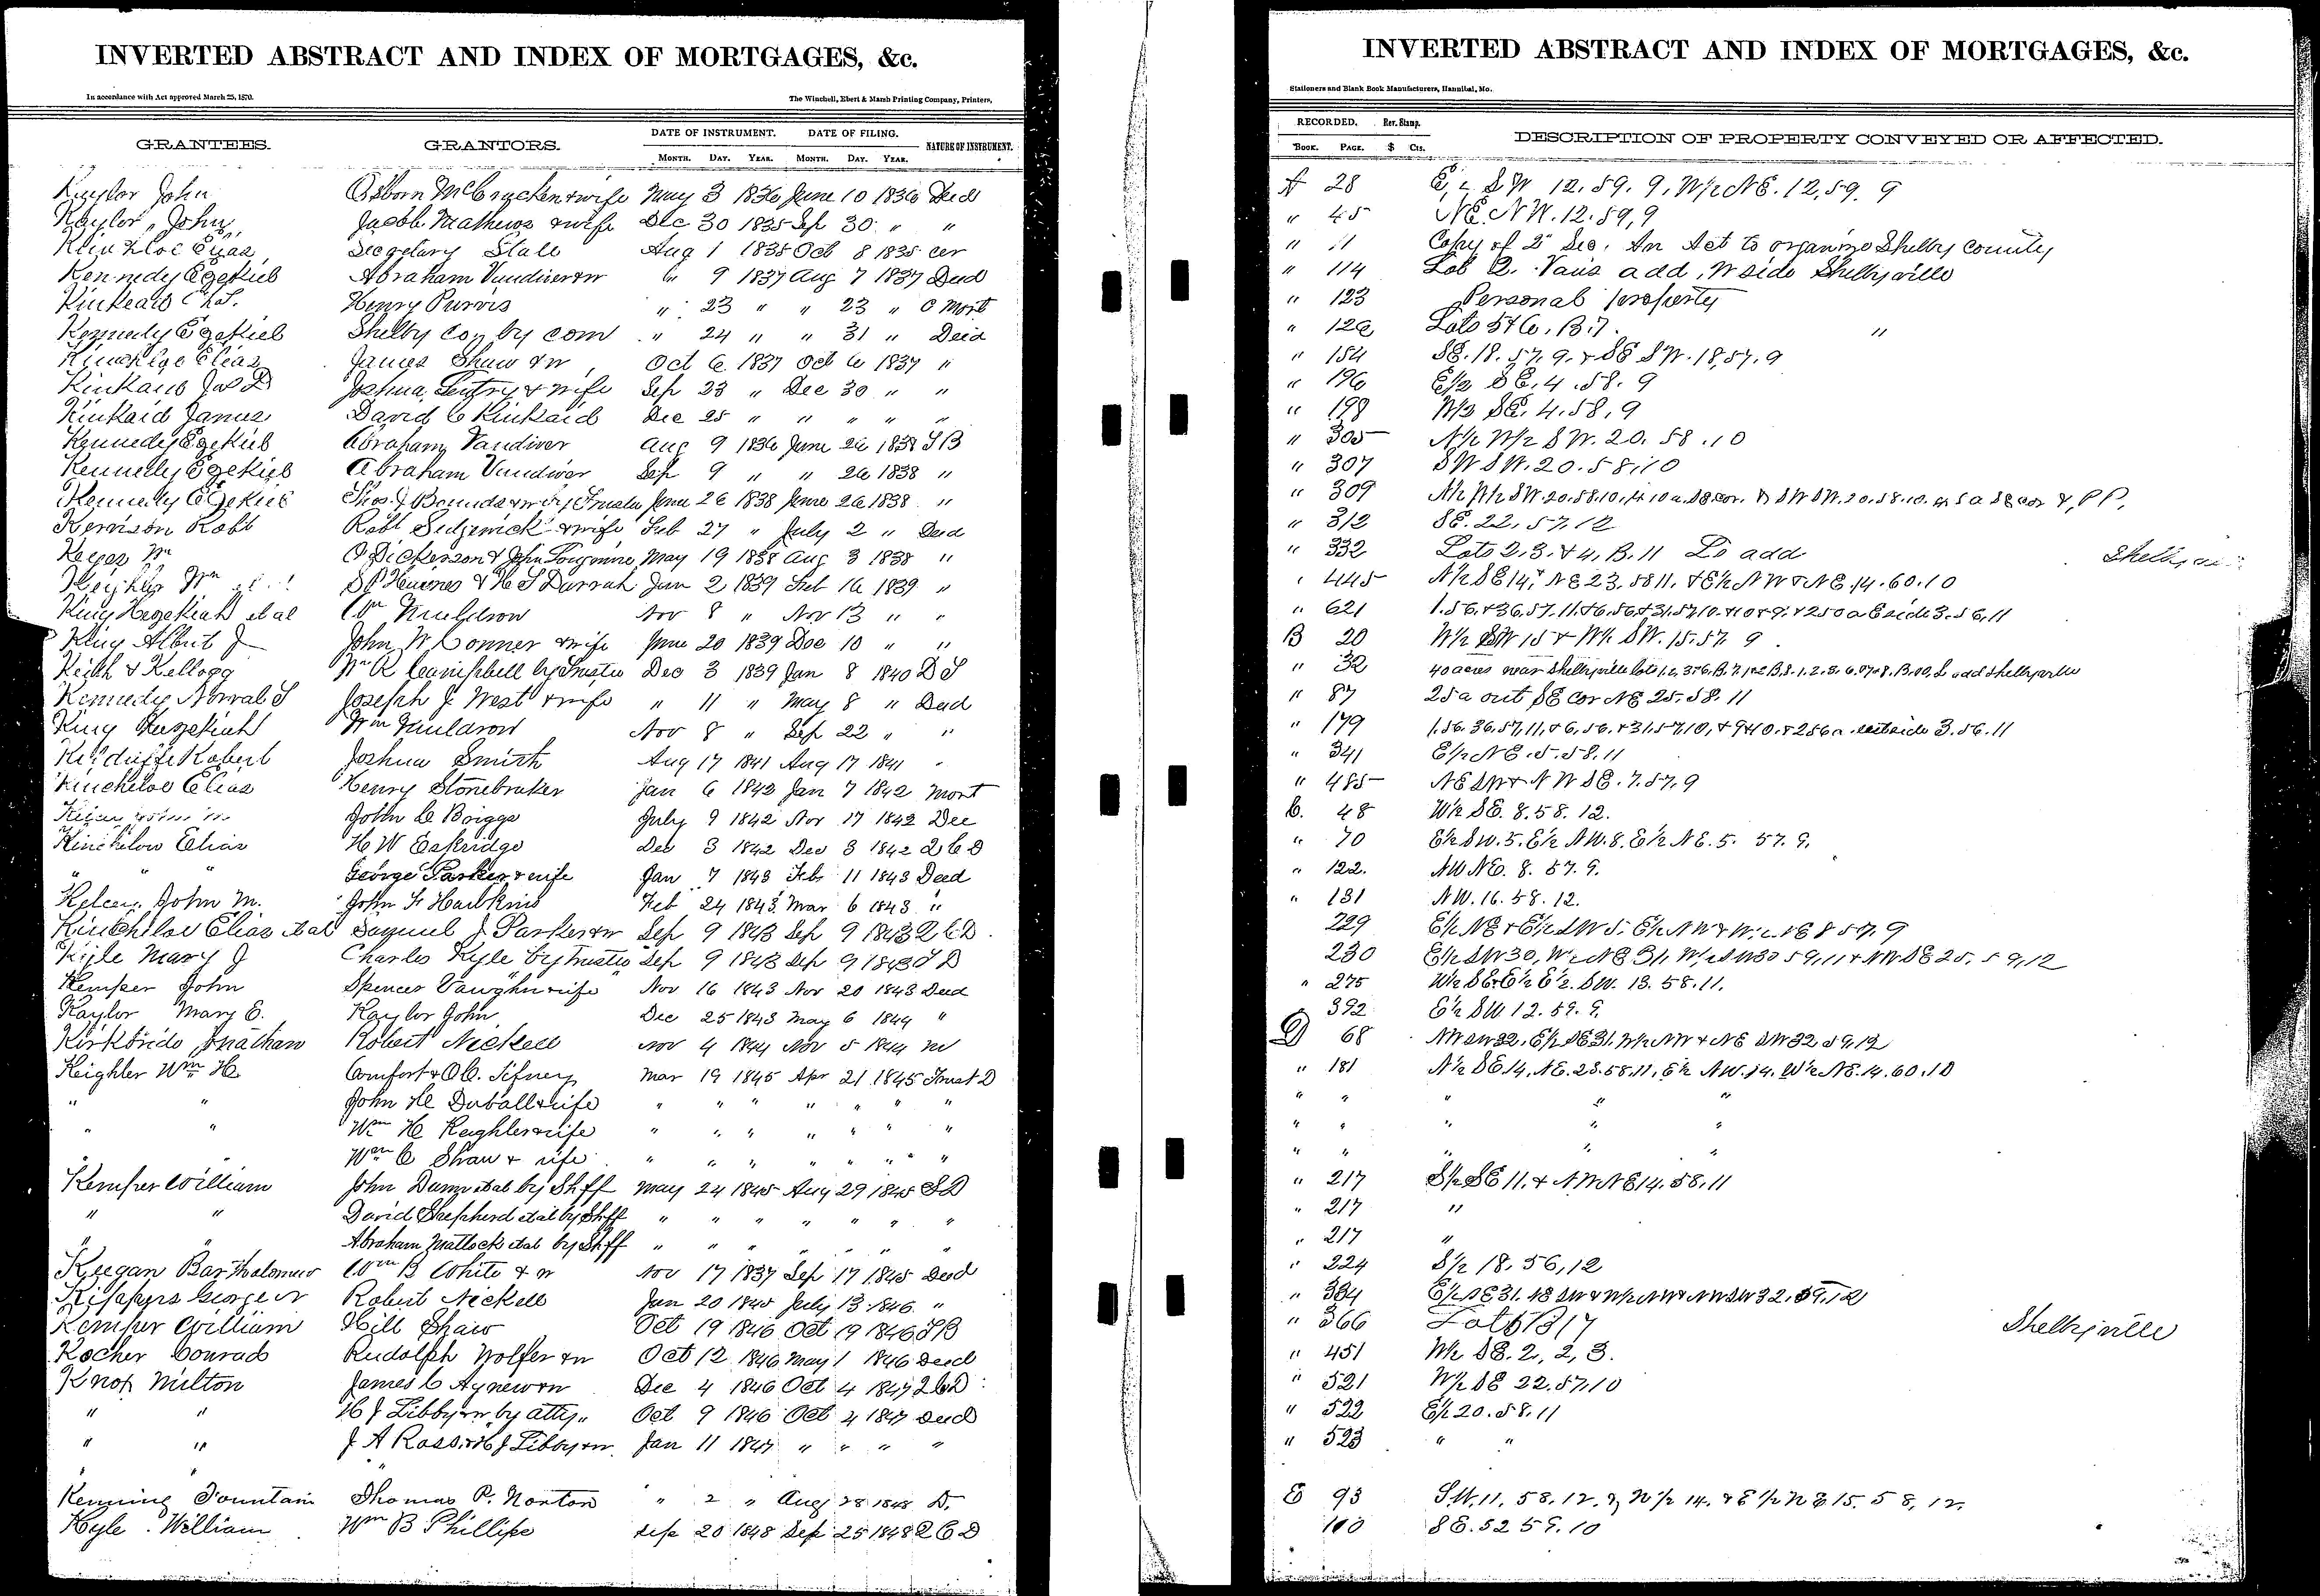 INVERTED ABSTRACT AND INDEX OF MORTGAGES, &c.
In accordance with Act approved March 25, 1870.
The Winchell, Ebert & Marsh Printing Company, Printers,
GRANTEES. GRANTORS. DATE OF INSTRUMENT. DATE OF FILING. NATURE OF INSTRUMENT.
MONTH. DAY. YEAR. MONTH. DAY. YEAR.
Kaylor John Osborn McCracken & wife May 3 1836 June 10 1836 Deed
Kaylor, John, Jacob Mathews & wife Dec 30 1835 Sep 30 " "
Kincheloe Elias Secretary State Aug 1 1835 Oct 8 1835 cer
Kennedy Ezekiel Abraham Vandiver & w 9 1837 Aug 7 1837 Deed
Kinkead Henry Purvis " 23 " " 23 " C Mort
Kennedy Ezekiel Shelby Coy by com " 24 " " 31 " Deed
Kincheloe Elias James Shaw & w Oct 6 1837 Oct 6 1837 "
Kinkaid Jas D Joshua Gentry & wife Sep 23 " Dec 30 " "
Kinkaid James David C Kinkaid Dec 25 " " " " "
Kennedy Ezekiel Abraham Vandiver Aug 9 1836 June 26 1838 T B
Kennedy Ezekiel Abraham Vandiver Sep 9 " " 26 1838 "
Kennedy Ezekiel Thos J Bounds & w by Trustee June 26 1838 June 26 1838 "
Kennison Robt Robt Sedgewick & wife Feb 27 " July 2 " Deed
Keeger Wm O Dickerson & John Longmire May 19 1838 Aug 3 1838 "
Keighler Wm & H S Darrah Jan 2 1839 Feb 16 1839 "
King Hezekiah et al Wm Muldrow Nov 8 " Nov 13 " "
King Albert J John W Conner & wife June 20 1839 Dec 10 " "
Keith & Kellogg Wm R Campbell by Trustee Dec 3 1839 Jan 8 1840 D T
Kennedy Norval S Joseph J West & wife " 11 " May 8 " Deed
King Hezekiah Wm Muldrow Nov 8 " Sep 22 " "
Robert Joshua Smith Aug 17 1841 Aug 17 1841 "
Kincheloe Elias Henry Stonebraker Jan 6 1842 Jan 7 1842 Mort
John C Boiggs July 9 1842 Nov 17 1842 Dee
Kinchelow Elias H W Eskridge Dec 3 1842 Dec 3 1842 Q C D
" " George Parker & wife Jan 7 1843 Feb 11 1843 Deed
Kelcey John M. John F Hawkins Feb 24 1843 Mar 6 1843 "
Kincheloe Elias et al Samuel J Parker & w Sep 9 1843 Sep 9 1843 Q C D
Kyle Mary J Charles Kyle by Trustee Sep 9 1843 Sep 9 1843 T D
Kemper John Spencer Vaughn & wife Nov 16 1843 Nov 20 1843 Deed
Kaylor Mary E. Kaylor John Dec 25 1843 May 6 1844 "
Kirkbride Jonathan Robert Nickell Nov 4 1844 Nov 5 1844 M
Keighler Wm H. Comfort & O C. Tifney Mar 19 1845 Apr 21 1845 Trust D
" " John H Duvall & wife " " " " " " "
" " Wm H Keighler & wife " " " " " " "
" " Wm C Shaw & wife " " " " " " "
Kemper William John Dunn et al by Shff May 24 1845 Aug 29 1845 S D
" " David Shepherd et al by Shff " " " " " " "
" " Abraham Matlock et al by Shff " " " " " " "
Keegan Bartholomew Wm B White & w Nov 17 1837 Sep 17 1845 Deed
Kippers George W Robert Nickell Jan 20 1845 July 13 1846 "
Kemper William Hill Shaw Oct 19 1846 Oct 19 1846 T B
Kocher Conrad Rudolph Wolfer & w Oct 12 1846 May 1 1846 Deed
Knox Milton James C Agnew & w Dec 4 1846 Oct 4 1847 Q C D
" " H J Libby & w by atty Oct 9 1846 Oct 4 1847 Deed
" " J A Ross & H J Libby & w Jan 11 1847 " " " "
"
Kenning Fountain Thomas P. Norton " 2 " Aug 28 1848 D.
Kyle William Wm B Phillips Sep 20 1848 Sep 25 1848 Q C D
INVERTED ABSTRACT AND INDEX OF MORTGAGES, &c.
Stationers and Blank Book Manufacturers, Hannibal, Mo.
RECORDED. Rev. Stamp. DESCRIPTION OF PROPERTY CONVEYED OR AFFECTED.
BOOK. PAGE. $ CTS.
A 28 E 1/2 SW 12. 59. 9, W/2 NE. 12, 59. 9
" 45 NE. NW. 12. 59, 9
" 11 Copy of 2" Sec. An Act to organize Shelby County
" 114 Lot 2. Vans add, W side Shelbyville
" 123 Personal property
" 126 Lots 5 & 6, B. 7. "
" 154 SE. 18. 57. 9. & SE SW. 18, 57. 9
" 196 E/2 SE. 4. 58. 9
" 198 W/2 SE. 4. 58. 9
" 305 N/2 W/2 SW. 20. 58. 10
" 307 SW SW. 20. 58. 10
" 309 N/2 W/2 SW. 20. 58. 10, & SW SW. 20. 58. 10. P P.
" 312 SE. 22. 57. 12
" 332 Lots 2. 3. & 4, B. 11 Lo add
" 445 N/2 SE 14, NE 23. 58 11. & E/2 NW & NE. 14. 60. 10
" 621 1. 56. & 36. 57. 11. & 6. 56. & 31. 57. 10. & 250 a E side 3. 56. 11
B 20 W/2 SW 15 & W/2 SW. 15. 57. 9
" 32 40 acres near Shelbyville add Shelbyville
" 87 25 a out SE cor NE 25. 58. 11
" 179 1. 56. 36. 57, 11, & 6, 56. & 31. 57. 10, & 256 a 3. 56. 11
" 341 E/2 NE. 5. 58. 11
" 485 NE SW & NW SE. 7. 57. 9
C. 48 W/2 SE. 8. 58. 12.
" 70 E/2 SW. 5. E/2 NW. 8. E/2 NE. 5. 57. 9.
" 122. NW NE. 8. 57. 9.
" 131 NW. 16. 58. 12.
229 E/2 NE & E/2 SW 5. E/2 NW & NE 8 57. 9
230 E/2 SW 30, W/2 NE 31, W/2 SW 30 59, 11 & NW SE 25. 59, 12
" 275 W/2 SE & E/2 E/2. SW. 13. 58. 11.
" 392 E/2 SW. 12. 59. 9.
D 68 NW SW 32, E/2 SE 31, W/2 NW & NE SW 32 59, 12
" 181 N/2 SE. 14, NE. 23. 58. 11, E/2 NW. 14. W/2 NE. 14. 60. 10
" " " " "
" " " " "
" " " " "
" 217 S/2 SE 11. & NW NE 14. 58. 11
" 217 "
" 217 "
" 224 S/2 18. 56, 12
" 334 E/2 SE 31. & W/2 NW & NW SW 32. 59. 12
" 366 Lot 6 B 17 Shelbyville
" 451 W/2 SE. 2, 2, 3.
" 521 W/2 SE 22. 57. 10
" 522 E/2 20. 58. 11
" 523 " "
E 93 S.W. 11. 58. 12. & N 1/2 14. & E 1/2 NE 15. 58, 12.
100 SE. 52 59. 10